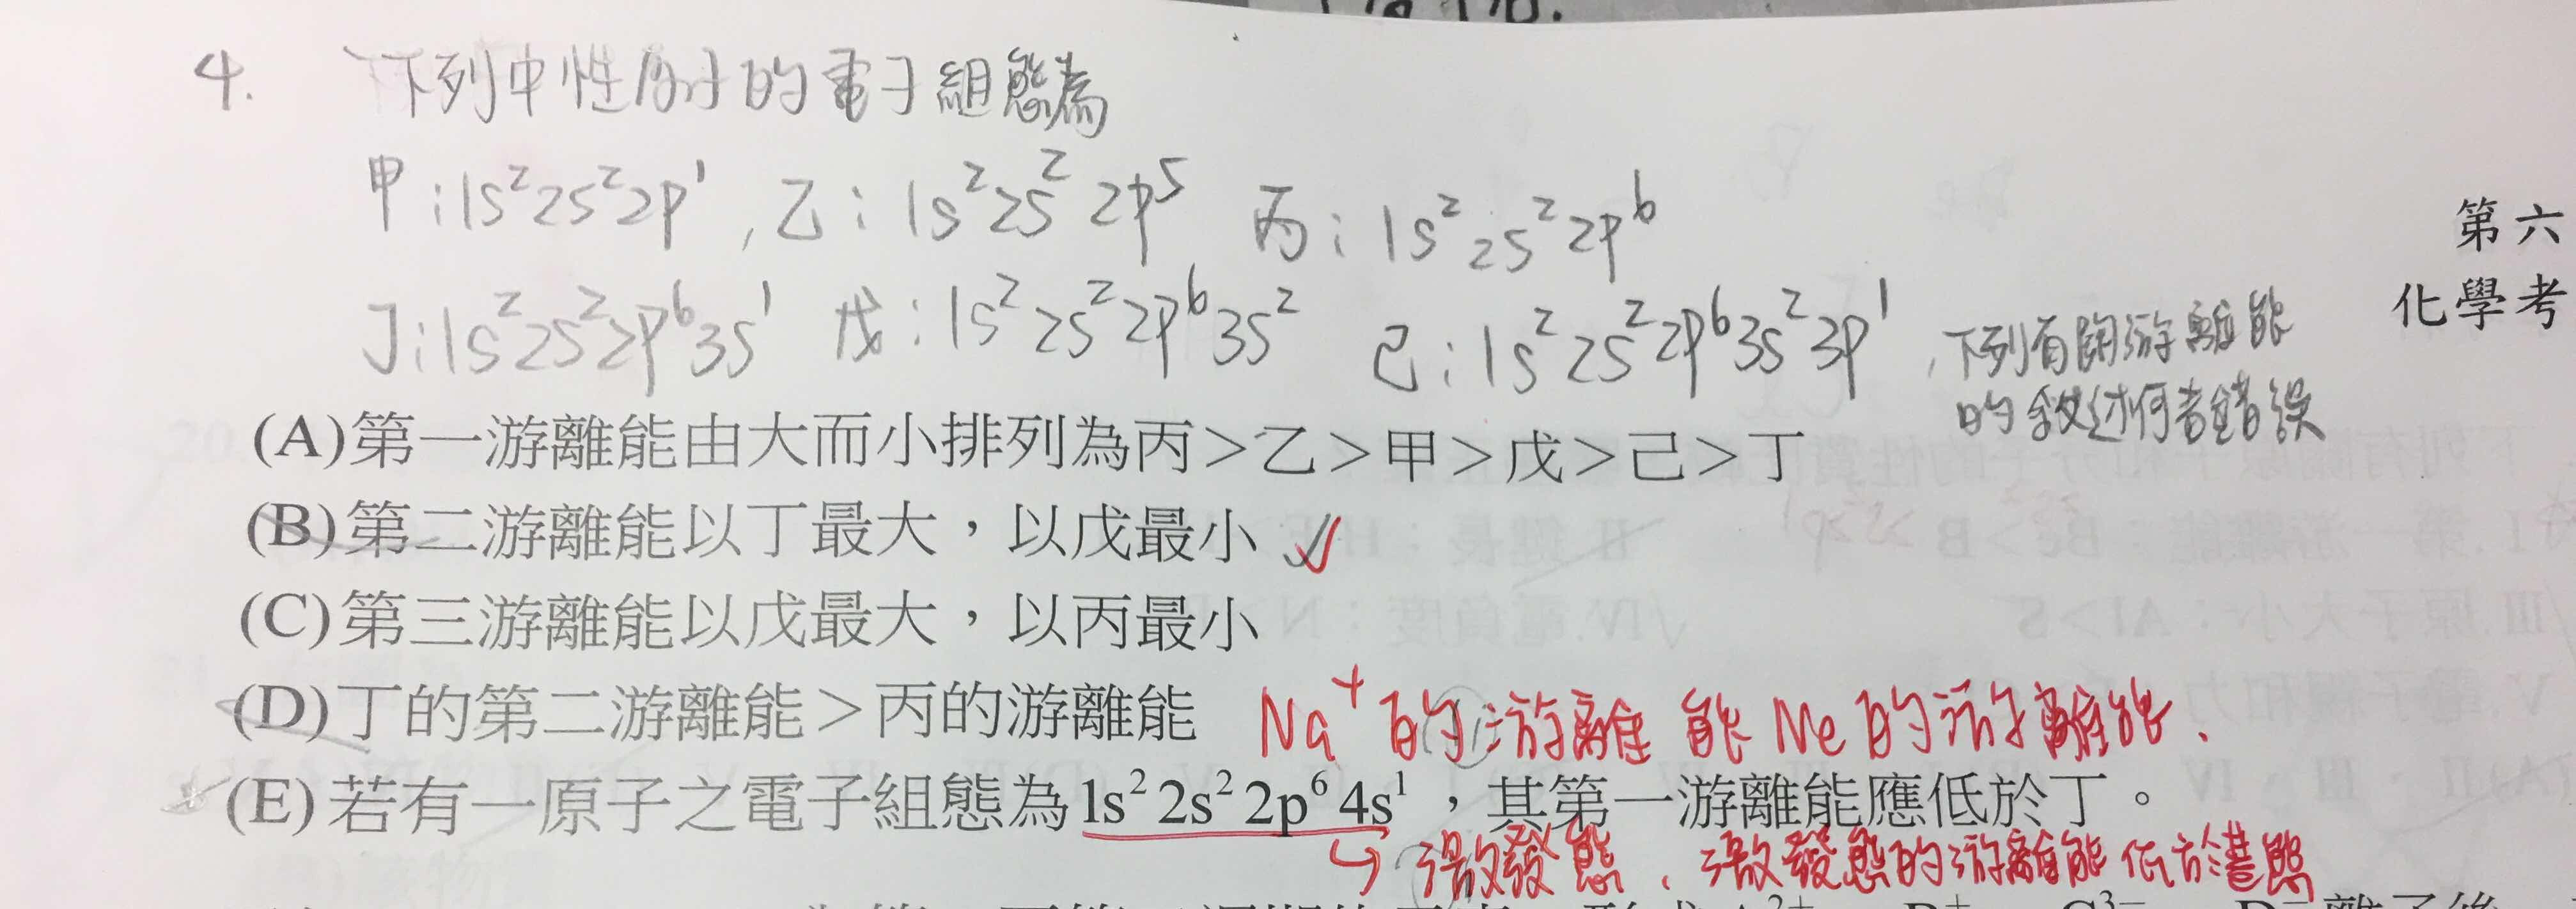 4. 下列中性原子的電子組態為
甲:1s²2s²2p¹, 乙:1s²2s²2p⁵ 丙:1s²2s²2p⁶
丁:1s²2s²2p⁶3s¹ 戊:1s²2s²2p⁶3s² 己:1s²2s²2p⁶3s²3p¹, 下列有關游離能
的敘述何者錯誤
第六
化學考
(A)第一游離能由大而小排列為丙>乙>甲>戊>己>丁
(B)第二游離能以丁最大,以戊最小 ✓
(C)第三游離能以戊最大,以丙最小
(D)丁的第二游離能>丙的游離能 Na⁺的游離能 Ne的游離能、
(E)若有一原子之電子組態為1s²2s²2p⁶4s¹,其第一游離能應低於丁。
↳激發態、激發態的游離能低於基態